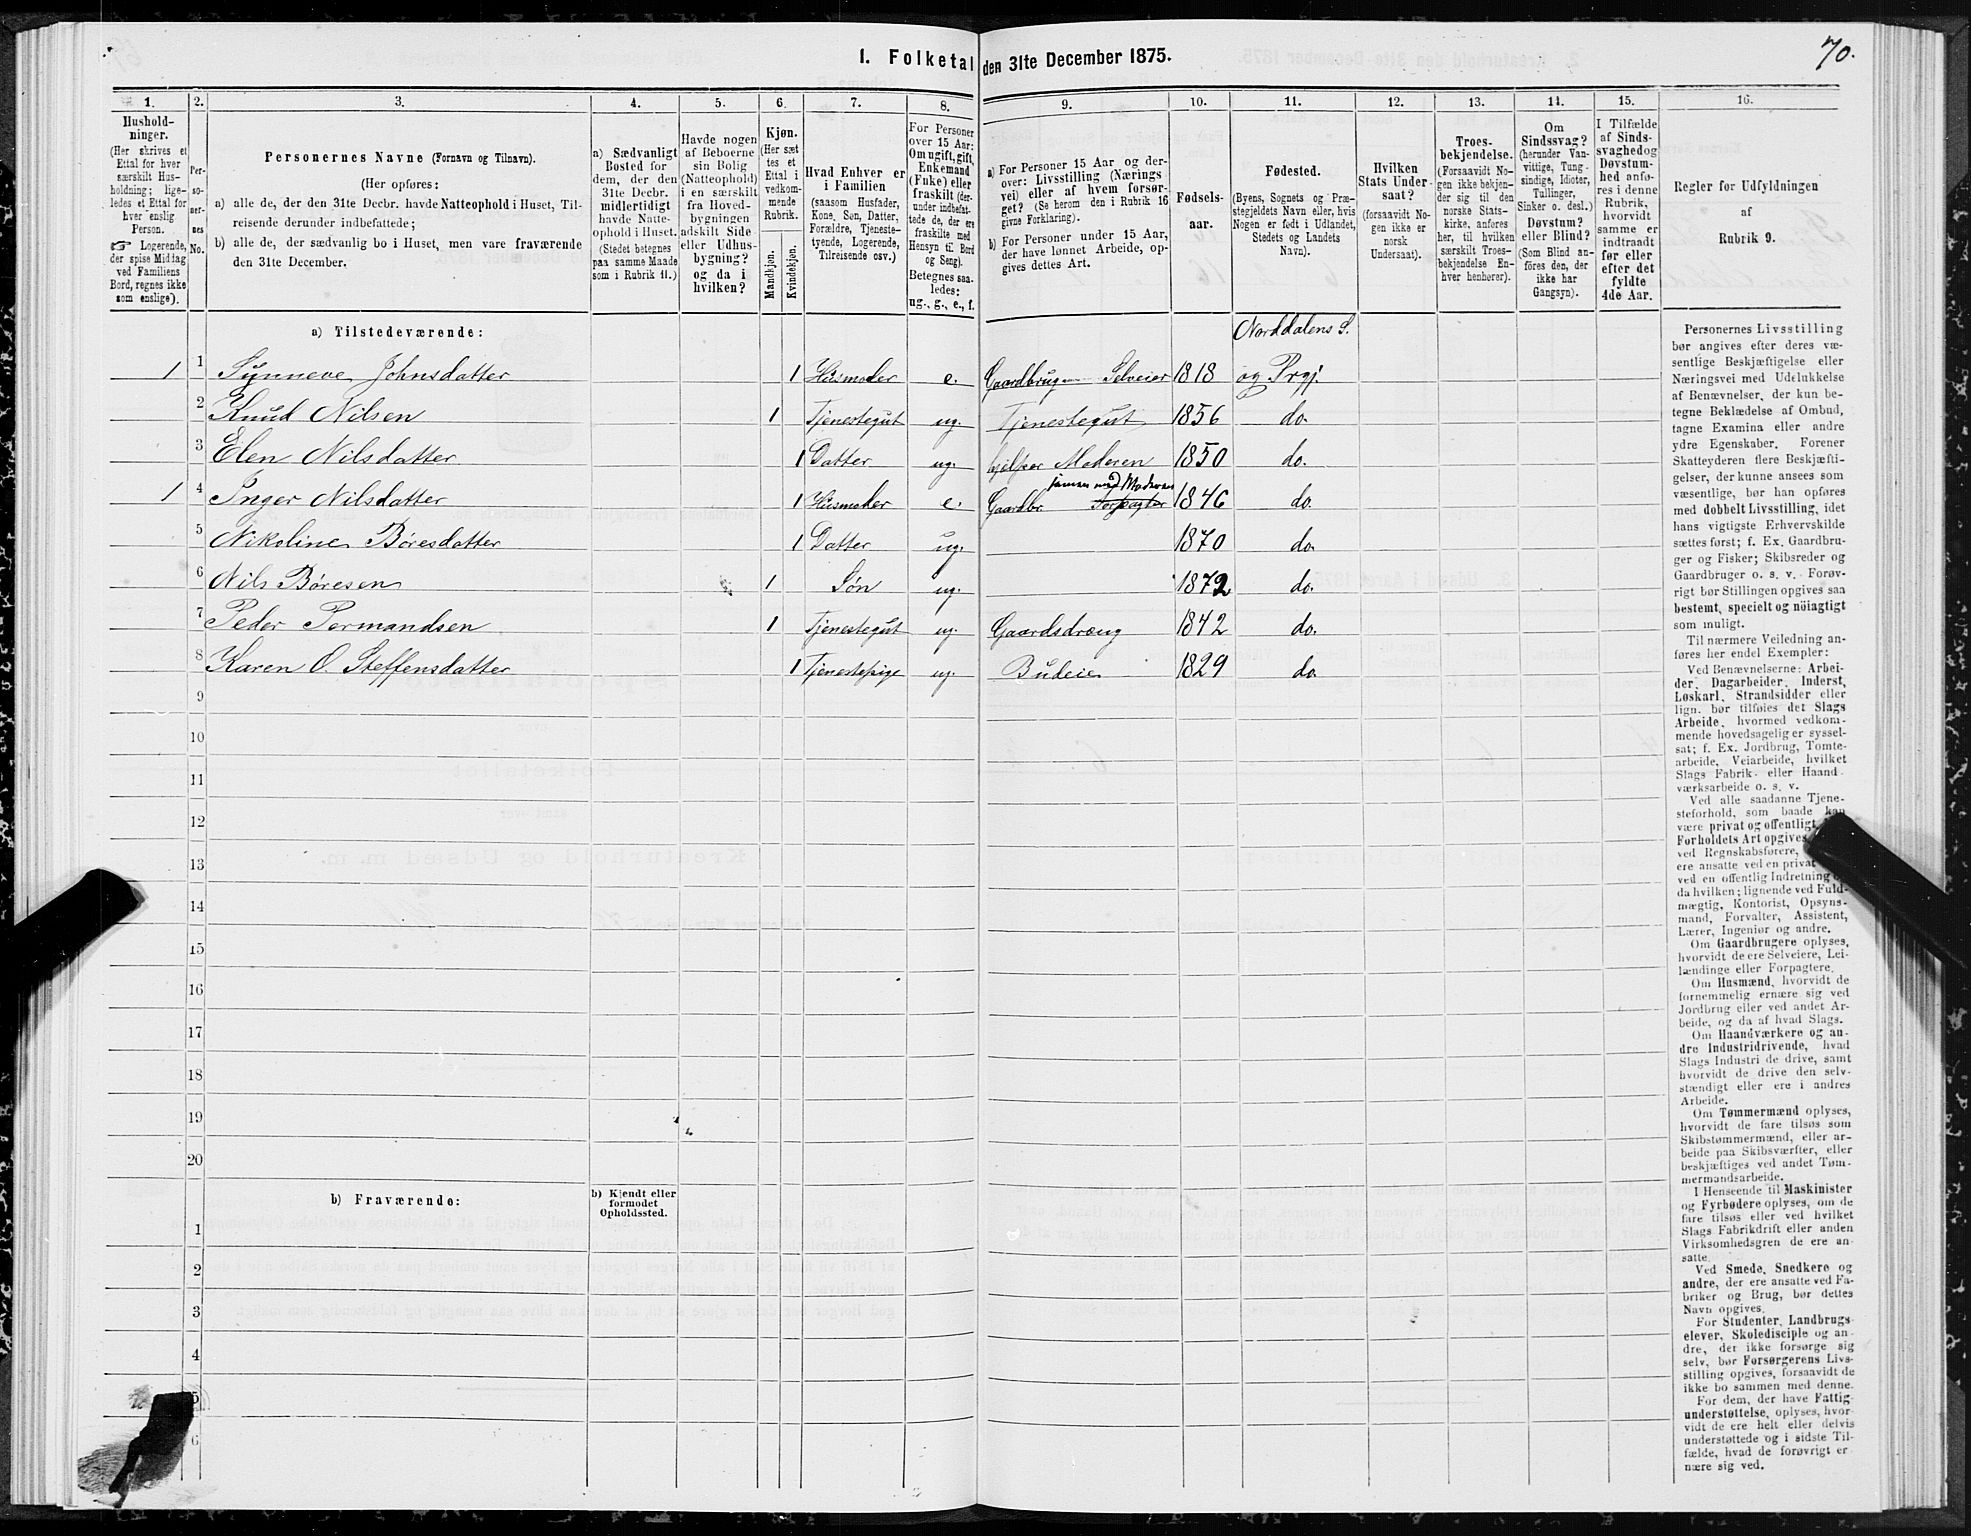 70.
1. Folketal den 31te December 1875.
1. 2. 3. 4. 5. 6. 7. 8. 9. 10. 11. 12. 13. 14. 15. 16.
Hushold-
ninger.
(Her skrives et
Ettal for hver
særskilt Hus-
holdning; lige-
ledes et Ettal for
hver enslig
Person.
☞ Logerende,
der spise Middag
ved Familiens
Bord, regnes ikke
som enslige).
Per-
so-
ner-
nes
No.
Personernes Navne (Fornavn og Tilnavn).
(Her opføres:
a) alle de, der den 31te Decbr. havde Natteophold i Huset, Til-
reisende derunder indbefattede;
b) alle de, der sædvanlig bo i Huset, men vare fraværende
den 31te December.
a) Sædvanligt
Bosted for
dem, der den
31te Decbr.
midlertidigt
havde Natte-
ophold i Huset.
(Stedet betegnes
paa samme Maade
som i Rubrik 11.)
Havde nogen
af Beboerne
sin Bolig
(Natteophold)
i en særskilt
fra Hoved-
bygningen
adskilt Side-
eller Udhus-
bygning?
og da i
hvilken?
Kjøn.
(Her sæt-
tes et
Ettal i
vedkom-
mende
Rubrik.
Mandkjøn.
Kvindekjøn.
Hvad Enhver er
i Familien
(saasom Husfader,
Kone, Søn, Datter,
Forældre, Tjeneste-
tyende, Logerende,
Tilreisende osv.)
For Personer
over 15 Aar:
Om ugift, gift,
Enkemand
(Enke) eller
fraskilt (der-
under indbefat-
tede de, der ere
fraskilte med
Hensyn til Bord
og Seng).
Betegnes saa-
ledes:
ug., g., e., f.
a) For Personer 15 Aar og der-
over: Livsstilling (Nærings-
vei) eller af hvem forsør-
get? (Se herom den i Rubrik 16
givne Forklaring).
b) For Personer under 15 Aar,
der have lønnet Arbeide, op-
gives dettes Art.
Fødsels-
aar.
Fødested.
(Byens, Sognets og Præ-
stegjeldets Navn eller, hvis
Nogen er født i Udlandet,
Stedets og Landets
Navn).
Hvilken
Stats Under-
saat?
(forsaavidt No-
gen ikke er
norsk
Undersaat).
Troes-
bekjendelse.
(Forsaavidt No-
gen ikke bekjen-
der sig til den
norske Stats-
kirke, anføres
her, til hvilken
særskilt Troes-
bekjendelse En-
hver henhører).
Om
Sindssvag?
(herunder Van-
vittige, Tung-
sindige, Idioter,
Tullinger,
Sinker o. desl.)
Døvstum?
eller Blind?
(Som Blind an-
føres den, der
ikke har
Gangsyn).
I Tilfælde
af Sinds-
svaghed og
Døvstum-
hed anfø-
res i denne
Rubrik,
hvorvidt
samme er
indtraadt
før eller
efter det
fyldte
4de Aar.
Regler for Udfyldningen
af
Rubrik 9.
a) Tilstedeværende:
Norddalens S.
1 1 Synneve Johnsdatter 1 Husmoder e. Gaardbrug Selveier 1818 og Prgj.
2 Knud Nilsen 1 Tjenestegut ug. Tjenestegut 1856 do.
3 Elen Nilsdatter 1 Datter ug. hjelper Moderen 1850 do.
samen med Moderen
1 4 Inger Nilsdatter 1 Husmoder e. Gaardbr. Forpagter 1846 do.
5 Nikoline Børesdatter 1 Datter ug. 1870 do.
6 Nils Børesen 1 Søn ug. 1872 do.
7 Peder Permandsen 1 Tjenestegut ug. Gaardsdræng 1842 do.
8 Karen O. Steffensdatter 1 Tjenestepige ug. Budeie 1829 do.
9
10
11
12
13
14
15
16
17
18
19
20
b) Fraværende:
b) Kjendt eller
formodet
Opholdssted.
1
2
3
4
5
6
Personernes Livsstilling
bør angives efter deres væ-
sentlige Beskjæftigelse eller
Næringsvei med Udelukkelse
af Benævnelser, der kun be-
tegne Beklædelse af Ombud,
tagne Examina eller andre
ydre Egenskaber. Forener
Skatteyderen flere Beskjæfti-
gelser, der kunne ansees som
væsentlige, bør han opføres
med dobbelt Livsstilling, idet
hans vigtigste Erhvervskilde
sættes først; f. Ex. Gaardbru-
ger og Fisker; Skibsreder og
Gaardbruger o. s. v. Forøv-
rigt bør Stillingen opgives saa
bestemt, specielt og nöiagtigt
som muligt.
Til nærmere Veiledning an-
føres her endel Exempler:
Ved Benævnelserne: Arbei-
der, Dagarbeider, Inderst,
Løskarl, Strandsidder eller
lign. bør tilføies det Slags
Arbeide, hvormed vedkom-
mende hovedsagelig er syssel-
sat; f. Ex. Jordbrug, Tomte-
arbeide, Veiarbeide, hvilket
Slags Fabrik- eller Haand-
værksarbeide o. s. v.
Ved alle saadanne Tjene-
steforhold, som baade kan
være privat og offentligt,
Forholdets Art opgives
ved Regnskabsførere,
ere ansatte ved en privat
ved en offentlig Indretning
da hvilken; lignende ved Fuld-
mægtig, Kontorist, Opsyns-
mand, Forvalter, Assistent,
Lærer, Ingeniør og andre.
Om Gaardbrugere oplyses,
hvorvidt de ere Selveiere, Lei-
lændinge eller Forpagtere.
Om Husmænd, hvorvidt de
fornemmelig ernære sig ved
Jordbrug eller ved andet Ar-
beide, og da af hvad Slags.
Om Haandværkere og an-
dre Industridrivende, hvad
Slags Industri de drive, samt
hvorvidt de drive den selv-
stændigt eller ere i andres
Arbeide.
Om Tømmermænd oplyses,
hvorvidt de fare tilsøs som
Skibstømmermænd, eller ar-
beide paa Skibsværfter, eller
beskjæftiges ved andet Tøm-
mermandsarbeide.
I Henseende til Maskinister
og Fyrbødere oplyses, om de
fare tilsøs eller ved hvilket
Slags Fabrikdrift eller anden
Virksomhedsgren de ere an-
satte.
Ved Smede, Snedkere og
andre, der ere ansatte ved Fa-
briker og Brug, bør dettes
Navn opgives.
For Studenter, Landbrugs-
elever, Skoledisciple og an-
dre, der ikke forsørge sig
selv, bør Forsørgerens Livs-
stilling opgives, forsaavidt de
ikke bo sammen med denne.
For dem, der have Fattig-
understøttelse, oplyses, hvor-
vidt de ere helt eller delvis
understøttede og i sidste Til-
fælde, hvad de forøvrigt er-
nære sig ved.